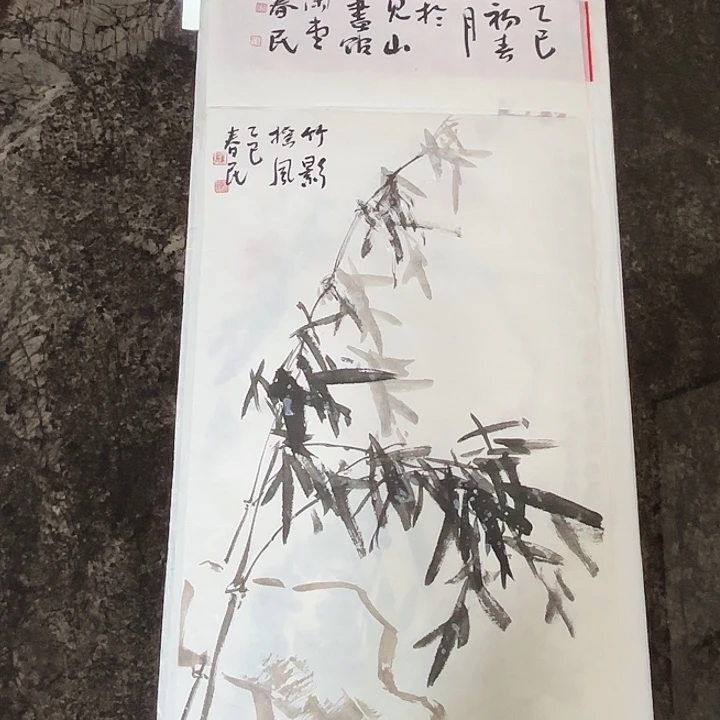 乙巳
初春
月
於
見山
畫館
春民
竹影
搖風
乙巳
春民